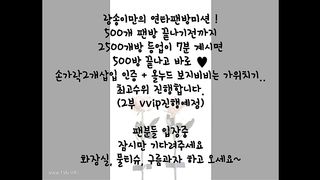 랑송이만의 연타팬방미션 !
500개 팬방 끝나기전까지
2500개방 등업이 7분 계시면
500방 끝나고 바로 ♥
손가락2개삽입 인증 + 올누드 보지비비는 가위치기..
최고수위 진행합니다.
(2부 vvip진행예정)
팬분들 입장중
잠시만 기다려주세요
화장실, 물티슈, 구름과자 하고 오세요~